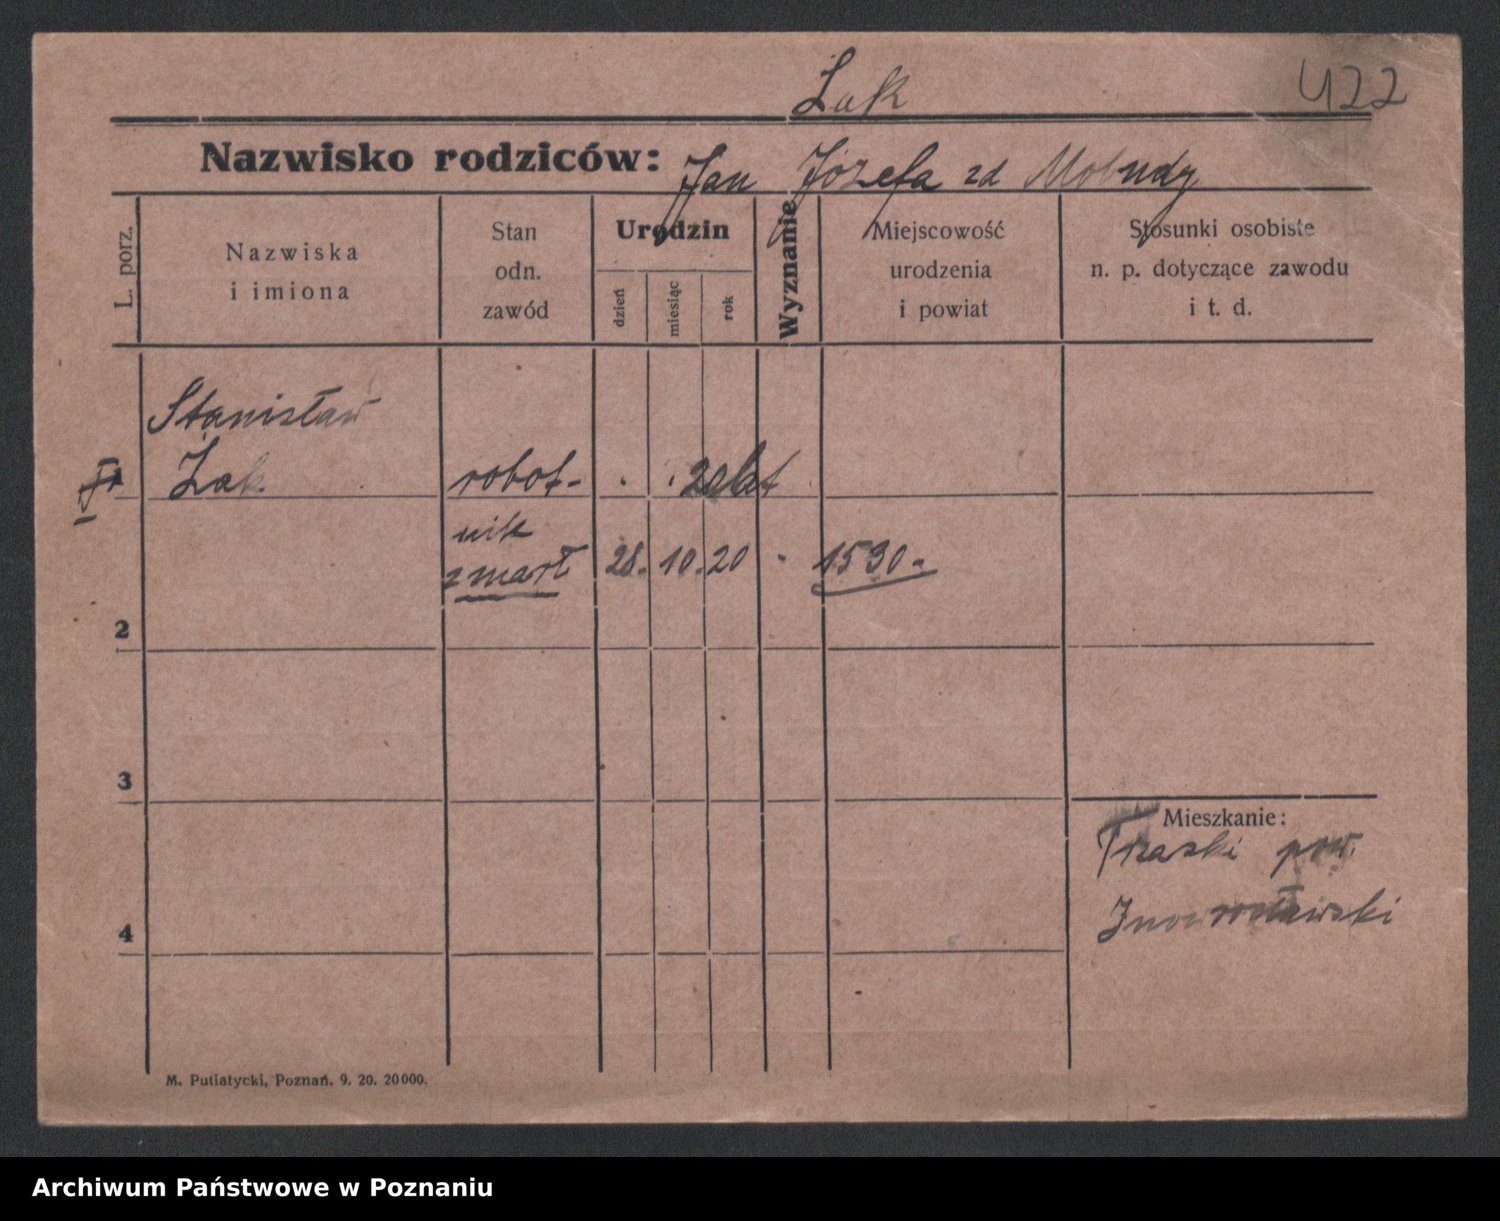 Żak 422
Nazwisko rodziców: Jan Józefa zd
L. porz.
Nazwiska
i imiona
Stan
odn.
zawód
Urodzin
dzień
miesiąc
rok
Wyznanie
Miejscowość
urodzenia
i powiat
Stosunki osobiste
n. p. dotyczące zawodu
i t. d.
Stanisław
1 Żak robot- . . 20 lat
nik
zmarł 28. 10. 20 - 1530-
2
3
Mieszkanie:
Trzaski pow.
Inowrocławski
4
M. Putiatycki, Poznań. 9. 20. 20000.
Archiwum Państwowe w Poznaniu